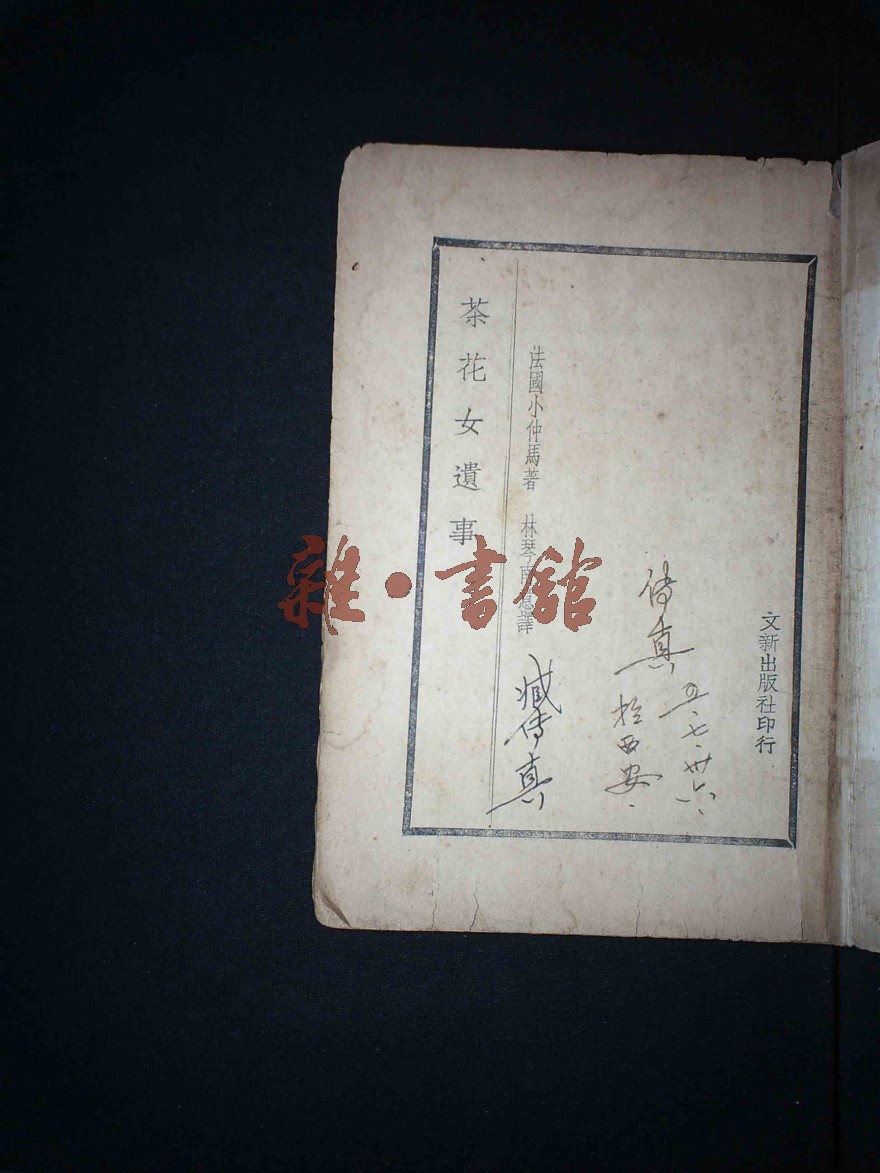 茶花女遺事
法國小仲馬著 林琴南 譯
臧传真
传真
於西安
五.七.卅六.
文新出版社印行
雜·書館